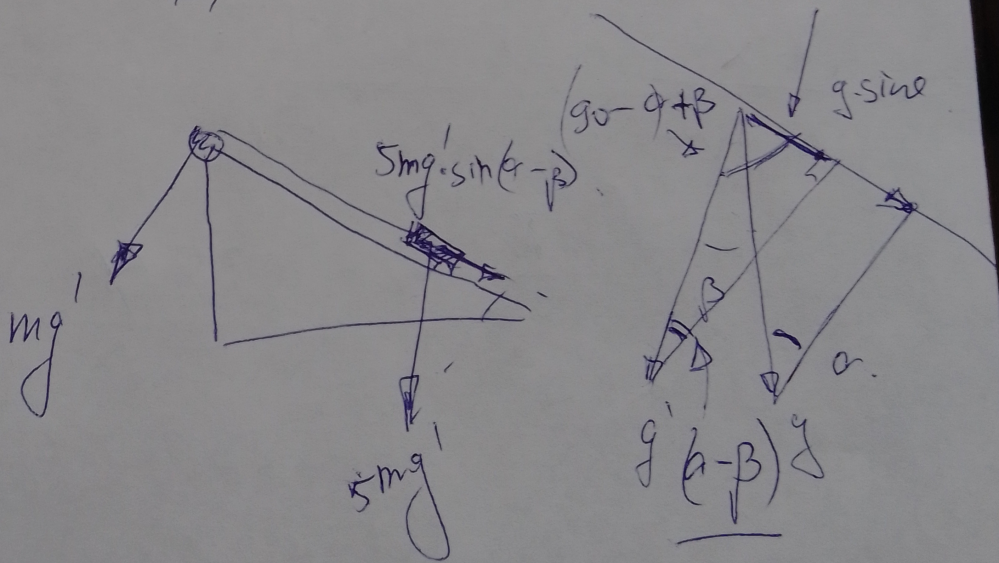 5mg'·sin(α-β)
mg'
5mg'
(90-α+β
g·sinα
β
α.
g'
(α-β)
g